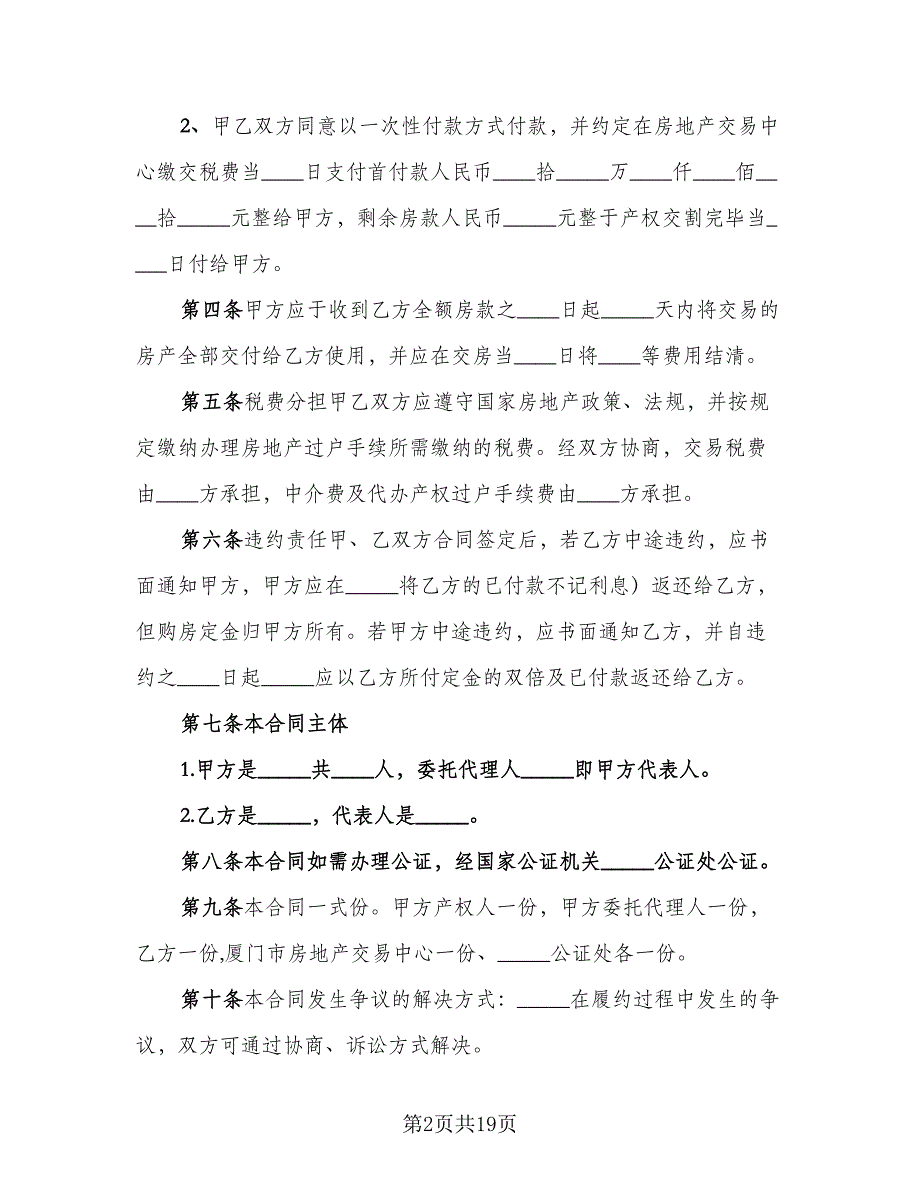 2、甲乙双方同意以一次性付款方式付款，并约定在房地产交易中
心缴交税费当____日支付首付款人民币____拾_____万____仟____佰__
__拾_____元整给甲方，剩余房款人民币_____元整于产权交割完毕当_
___日付给甲方。
第四条甲方应于收到乙方全额房款之____日起_____天内将交易的
房产全部交付给乙方使用，并应在交房当____日将____等费用结清。
第五条税费分担甲乙双方应遵守国家房地产政策、法规，并按规
定缴纳办理房地产过户手续所需缴纳的税费。经双方协商，交易税费
由____方承担，中介费及代办产权过户手续费由____方承担。
第六条违约责任甲、乙双方合同签定后，若乙方中途违约，应书
面通知甲方，甲方应在_____将乙方的已付款不记利息）返还给乙方，
但购房定金归甲方所有。若甲方中途违约，应书面通知乙方，并自违
约之____日起_____应以乙方所付定金的双倍及已付款返还给乙方。
第七条本合同主体
1.甲方是_____共____人，委托代理人_____即甲方代表人。
2.乙方是_____，代表人是_____。
第八条本合同如需办理公证，经国家公证机关_____公证处公证。
第九条本合同一式份。甲方产权人一份，甲方委托代理人一份，
乙方一份,厦门市房地产交易中心一份、_____公证处各一份。
第十条本合同发生争议的解决方式：_____在履约过程中发生的争
议，双方可通过协商、诉讼方式解决。
第2页共19页